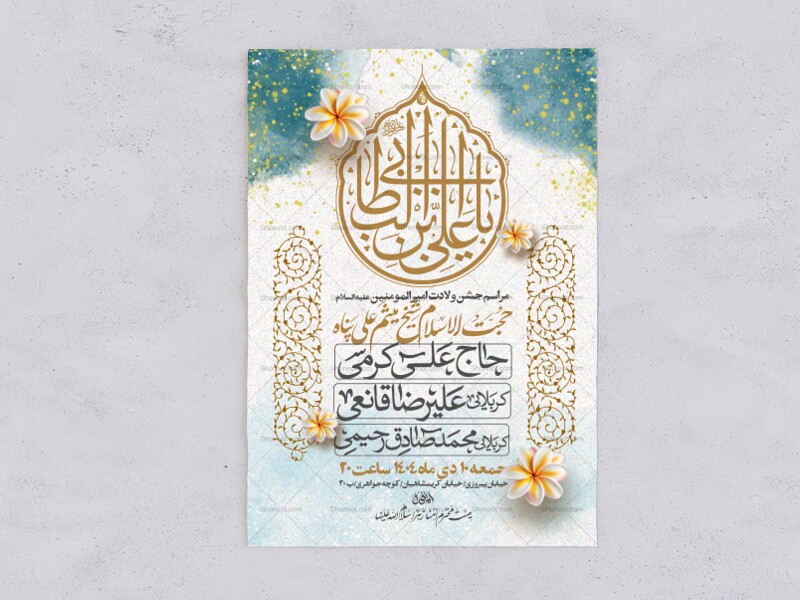 یا علی بن ابی طالب
مراسم جشن ولادت امیرالمومنین علیه السلام
حجت الاسلام شیخ میثم علی پناه
حاج علی کرمی
کربلایی علیرضا قانعی
کربلایی محمدصادق رحیمی
جمعه ۱۰ دی ماه ۱۴۰۴ ساعت ۲۰
خیابان پیروزی/خیابان کریمشاهیان/کوچه جواهری/پ ۳۰